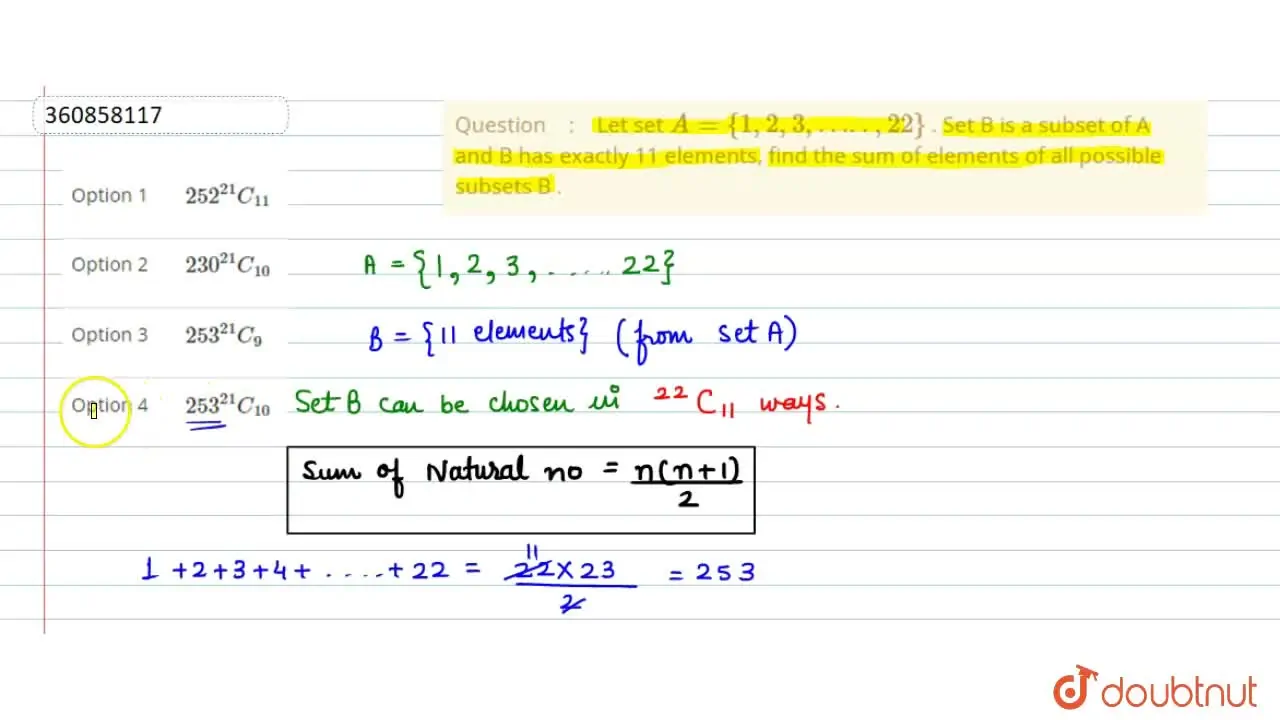 360858117
Question : Let set A = {1, 2, 3, ....., 22} . Set B is a subset of A
and B has exactly 11 elements, find the sum of elements of all possible
subsets B .
Option 1 252²¹C₁₁
Option 2 230²¹C₁₀
A = {1, 2, 3, ..... 22}
Option 3 253²¹C₉
B = {11 elements} (from set A)
Option 4 253²¹C₁₀
Set B can be chosen in ²²C₁₁ ways.
Sum of Natural no = n(n+1)/2
1 + 2 + 3 + 4 + .... + 22 = 11 22 × 23 / 2 = 253
doubtnut